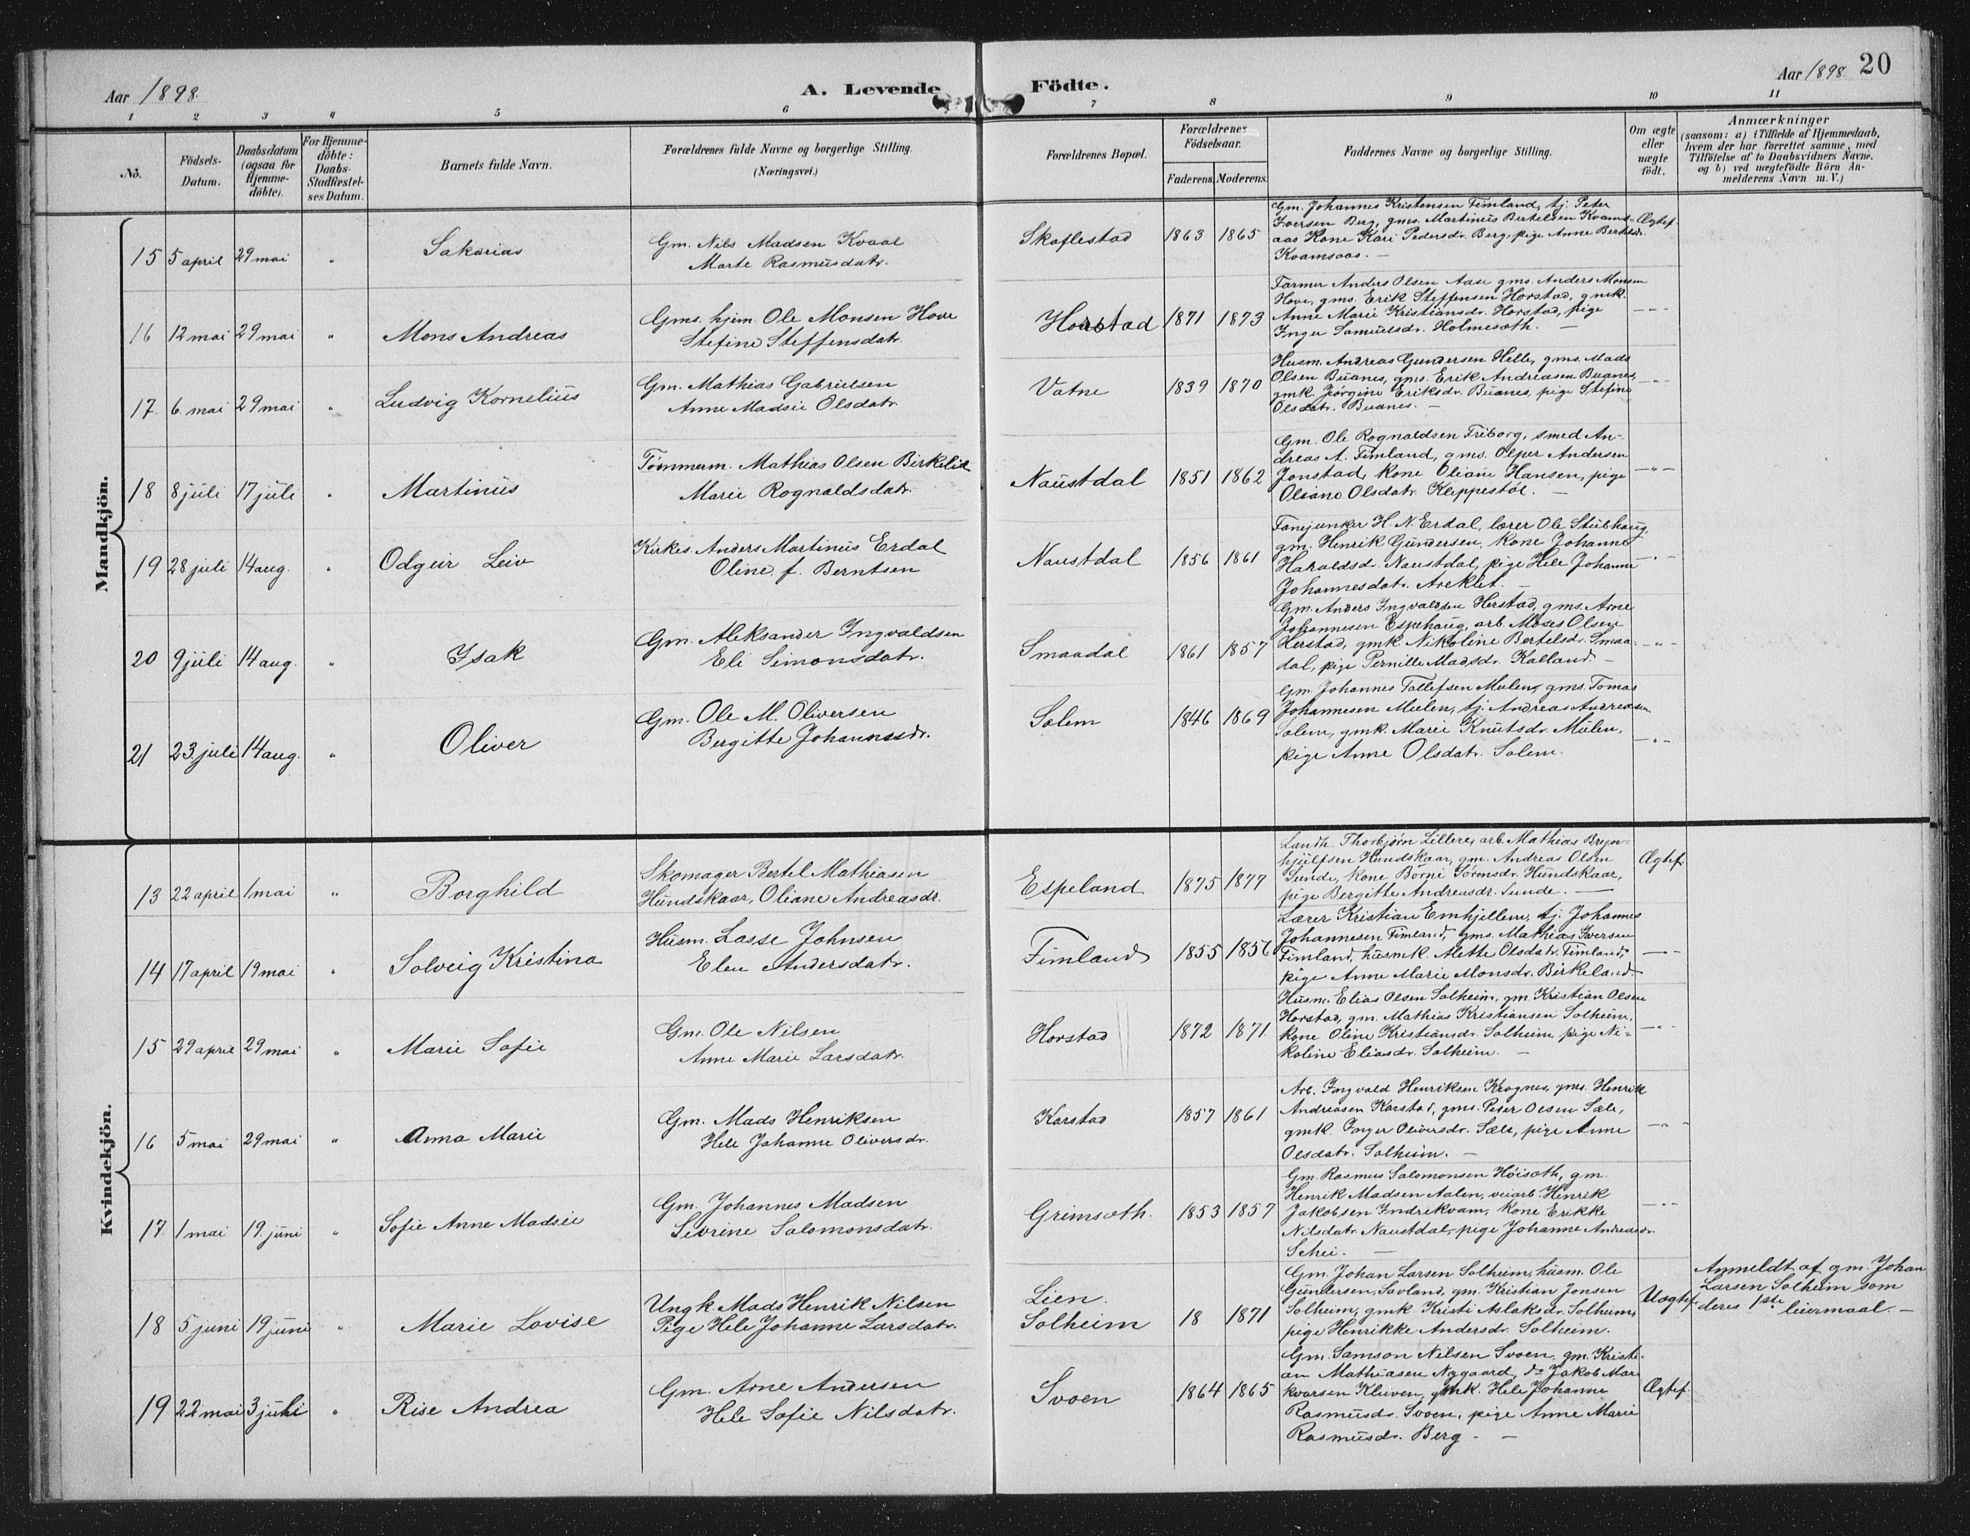 Aar 1898.
A. Levende Födte.
Aar 1898. 20
1 2 3 4 5 6 7 8 9 10 11
No.
Födsels-
Datum.
Daabsdatum
(ogsaa for
Hjemme-
döbte).
For Hjemme-
döbte:
Daabs-
Stadfæstel-
ses Datum.
Barnets fulde Navn.
Forældrenes fulde Navne og borgerlige Stilling.
(Næringsvei.)
Forældrenes Bopæl.
Forældrenes
Födselsaar.
Faderens. Moderens.
Faddernes Navne og borgerlige Stilling.
Om ægte
eller
uægte
födt.
Anmærkninger
(saasom: a) i Tilfælde af Hjemmedaab,
hvem der har forrettet samme, med
Tilföielse af to Daabsvidners Navne,
og b) ved uægtefödte Börn An-
melderens Navn m. V.)
Mandkjön.
15 5 april 29 mai " Sakarias
Gm. Nils Madsen Kvaal
Marte Rasmusdatr.
Skaflestad 1863 1865
Gm. Johannes Kristensen Fimland, tj. Peter
Iversen Berg, gms. Martinus Bertelsen Kvams-
aas Kone Kari Pedersdr. Berg, pige Anne Bertelsdr.
Kvamsaas. —
Ægtef.
16 12 mai 29 mai " Mons Andreas
Gms. hjem. Ole Monsen Hove
Stefine Steffensdatr.
Horstad 1871 1873
Farmer Anders Olsen Aase gms. Anders Monsen
Hove, gms. Erik Steffensen Horstad, gmk.
Anne Marie Kristiansdr. Horstad, pige
Inger Samuelsdr. Holmesæth. —
17. 6. mai 29 mai " Ludvig Kornelius
Gm. Mathias Gabrielsen
Anne Madsie Olsdatr.
Vatne 1839 1870
Husm. Andreas Gundersen Helle, gms. Mads
Olsen Buanes, gms. Erik Andreasen Buanes,
gmk. Jørgine Eriksdr. Buanes, pige Stefine
Olsdatr. Buanes. —
18 8 juli 17 juli " Martinus
Tømmerm. Mathias Olsen Birkelid
Marie Rognaldsdatr.
Naustdal 1851 1862
Gm. Ole Rognaldsen Friborg, smed An-
dreas A. Fimland, gms. Olper Andersen
Jonstad, kone Oliane Hansen, pige
Oliane Olsdatr. Kleppestøl. —
19 28 juli 14 aug. " Odgeir Leiv
Kirkes. Anders Martinus Erdal
Oline f. Berntsen
Naustdal 1856 1861
Fanejunker H. N. Erdal, lærer Ole Stubhaug,
gm. Henrik Gundersen, kone Johanne
Haraldsdr. Naustdal, pige Hele Johanne
Johannesdatr. Areklet. —
20 9 juli 14 aug. " Isak
Gm. Aleksander Ingvaldsen
Eli Simonsdatr.
Smaadal 1861 1857
Gm. Anders Ingvaldsen Herstad, gms. Arne
Johannesen Espehaug, arb. Moses Olsen
Herstad, gmk. Nikoline Bertelsdr. Smaa-
dal, pige Pernille Madsdr. Kalland. —
21 23. juli 14 aug. " Oliver
Gm. Ole M. Oliversen
Bergitte Johannesdr.
Solem 1846 1869
Gm. Johannes Tollefsen Mulen, gms. Tomas
Johannesen Mulen, tj. Andreas Andreasen
Solem, gmk. Marie Knutsdr. Mulen,
pige Anne Olsdatr. Solem.
Kvindekjön.
13 22 april 1 mai " Borghild
Skomager Bertel Mathiasen
Hundskaar, Oliane Andreasdr.
Espeland 1875 1877
Landh. Thorbjørn Lillere, arb. Mathias Bryn-
hjulfsen Hundskaar, gm. Andreas Olsen
Sunde, kone Børni Sørensdr. Hundskaar,
pige Bergitte Andreasdr. Sunde. —
Ægtef.
14 17 april 19 mai " Solveig Kristina
Husm. Lasse Johnsen
Elen Andersdatr.
Fimland 1855 1856
Lærer Kristian Emhjellem, tj. Johannes
Johannesen Fimland, gms. Mathias Iversen
Fimland, husmk. Alette Olsdatr. Fimland,
pige Anne Marie Monsdr. Birkeland
15 29 april 29 mai " Marie Sofie
Gm. Ole Nilsen
Anne Marie Larsdatr.
Horstad 1872 1871
Husm. Elias Olsen Solheim, gm. Kristian Olsen
Horstad, gm. Mathias Kristiansen Solheim,
kone Oline Kristiansdr. Solheim, pige Ni-
koline Eliasdr. Solheim. —
16 5 mai 29 mai " Anna Marie
Gm. Mads Henriksen
Hele Johanne Oliversdr.
Karstad 1857 1861
Arb. Ingvald Henriksen Krognes, gms. Henrik
Andreasen Karstad, gms. Peter Olsen Sæle,
gmk. Inger Oliversdr. Sæle, pige Anne
Olsdatr. Solheim. —
17. 1 mai 19. juni " Sofie Anne Madsie
Gm. Johannes Madsen
Sevrine Salomonsdatr.
Grimsæth. 1853 1857
Gm. Rasmus Salomonsen Høisæth, gm.
Henrik Madsen Aalen, veiarb. Henrik
Jakobsen Indrekvam, kone Erikke
Nilsdatr. Naustdal, pige Johanne Andreasdr.
Schei. —
18 5 juni 19 juni " Marie Lovise
Ungk. Mads Henrik Nilsen
Pige Hele Johanne Larsdatr.
Lien.
Solheim 18 1871
Gm. Johan Larsen Solheim, husm. Ole
Gundersen, Savland, gm. Kristian Jonsen
Solheim, gmk. Kristi Aslaksdr. Solheim,
pige Henrikke Andersdr. Solheim.
Uægtef.
Anmeldt af gm. Johan
Larsen Solheim som
deres 1ste leiermaal. —
19 22 mai 3 juli " Rise Andrea
Gm. Arne Andersen
Hele Sofie Nilsdatr.
Svoen 1864 1865
Gm. Samson Nilsen Svoen, gm. Kristi-
an Mathiasen Nygaard, do Jakob Mari
kvarsen Kleiven, gmk. Hele Johanne
Rasmusdr. Svoen, pige Anne Marie
Rasmusdr. Berg. —
Ægtef.